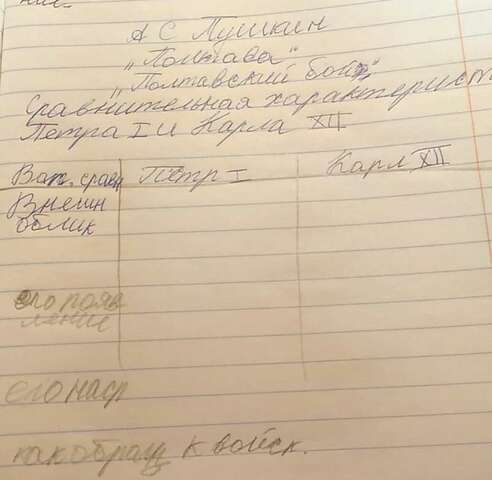 А С Пушкин
„Полтава"
„Полтавский бой"
Сравнительная характерист
Петра I и Карла XII
Воп. срав Петр I Карл XII
Внешн
облик
его появ
ление
его наср
как обращ к войск.